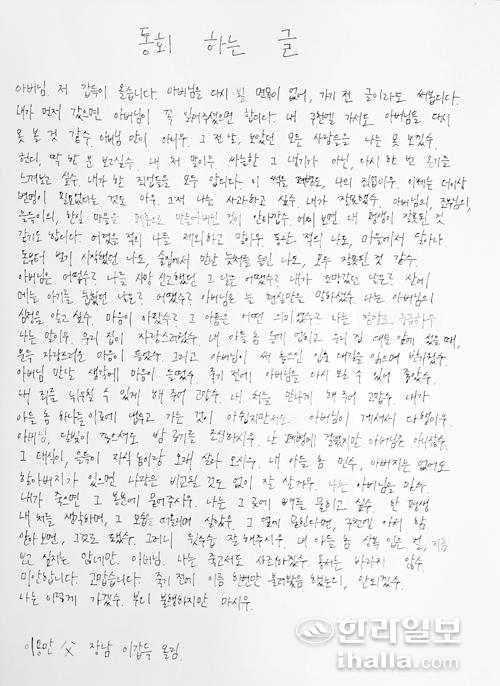 통회 하는 글
아버님. 저 갑득이 올습니다. 아버님을 다시 뵐 면목이 없어, 가기 전 글이라도 써봅니다.
내가 먼저 갔으면 아버님이 꼭 읽어주셨으면 합니다. 내 구천엘 가서도 아버님을 다시
못 볼 것 같수. 아버님 만이 아니우. 그 전 날, 보았던 모든 사람들을 나는 못 보겠수.
헌디, 딱 한 분 보고싶수. 내 처 말이우. 싸늘한 그 냉기가 아닌, 다시 한 번 온기를
느껴보고 싶수. 내가 한 짓인들을 모두 압니다. 이 썩을 폐병도, 나의 죄임이우. 이제는 더이상
변명이 필요없다는 것도 아우. 그저 나는 사과하고 싶수. 내가 잘못했수. 아버님의, 조부님의,
을득이의, 한실 마음을 폐촌으로 만들어버린 것이 안타깝수. 어찌 보면 내 평생이 잘못된 것
같기도 합니다. 어렸을 적의 나를 제외하고 말이우. 동난 적의 나도, 마을에서 달아나
돈부터 벌기 시작했던 나도, 술집에서 만난 꽃처를 들인 나도, 모두 잘못된 것 같수.
아버님은 어땠수? 나를 사망 신고했던 그 날은 어땠수? 내가 조마렸던 날은? 삼에
메는 아기를 눕혔던 날은? 어땠수? 아버님은 늘 현실만을 말하셨수. 나는 아버님의
심정을 알고 싶수. 마음이 아팠수? 그 아픔은 어떤 의미였수? 나는 참말로 궁금하우
나는 말이우. 우리 집이 자랑스러웠수. 내 아들 놈 눈에 멍이고 우리 집 대문 앞에 섰을 때,
문득 자랑스러운 마음이 들었수. 그리고 아버님이 써 놓으신 입춘 대길을 읽으며 반가웠수.
아버님 만날 생각에 마음이 들떴수. 죽기 전에 아버님을 다시 보일 수 있어 좋았수.
내 죄를 뉘우칠 수 있게 해 주어 고맙수. 내 처를 만나게 해 주어 고맙수. 내가
아들 놈 하나를 이곳에 냅두고 가는 것이 아쉽지만서도 아버님이 계셔서 다행이우.
아버님, 달빛이 좋으셔도 밤 공기를 조심하시우. 난 폐병에 걸렸지만 아버님은 아시잖수.
그 태식이, 을득이 자식 놈이랑 오래 살다 오시우. 내 아들 놈 민수, 아버지는 없어도
할아버지가 있으면 나랑은 비교될 것도 없이 잘 살거우. 나는 아버님을 믿수.
내가 죽으면 그 본촌에 묻어주시우. 나는 그 곳에 뼈를 묻히고 싶수. 한 평생
내 처를 생각하며, 그 모습을 떠올리며 살았우. 그 옆에 묻힌다면, 구천엘 가서 함
안아 보면, 그것로 됐수. 그러니 뒷수습 잘 해주시우. 내 아들 놈 상복 입은 걸, 지금
보고 싶지는 않네만. 아버님. 나는 죽고서도 사죄하겠수. 용서는 바라지 않수.
미안합니다. 고맙습니다. 죽기 전에 이름 한번만 불러봤음 했는디, 안되겠수.
나는 이렇게 가겠수. 부디 불행하지만 마시우.
이용만 父 장남 이갑득 올림.
한라일보
ihalla.com